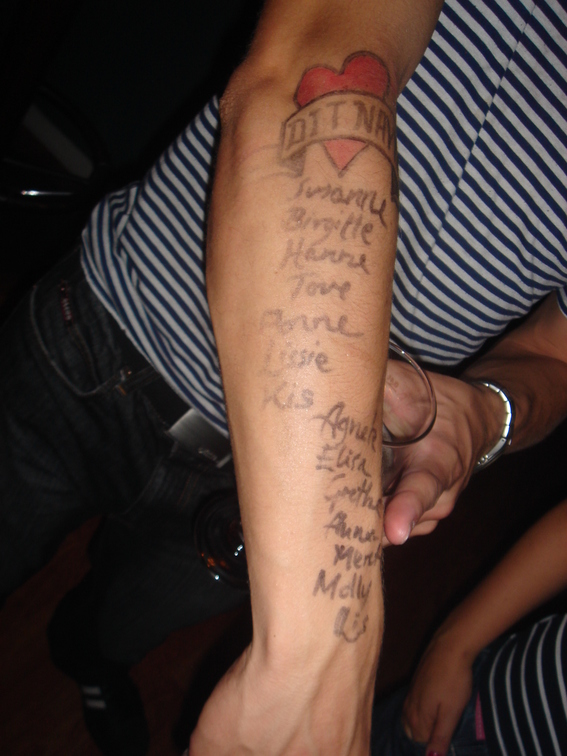 DIT NAV
Susanne
Birgitte
Hanne
Tove
Anne
Lissie
Kis
Agnete
Elisa
Grethe
Anna
Merete
Molly
Lis